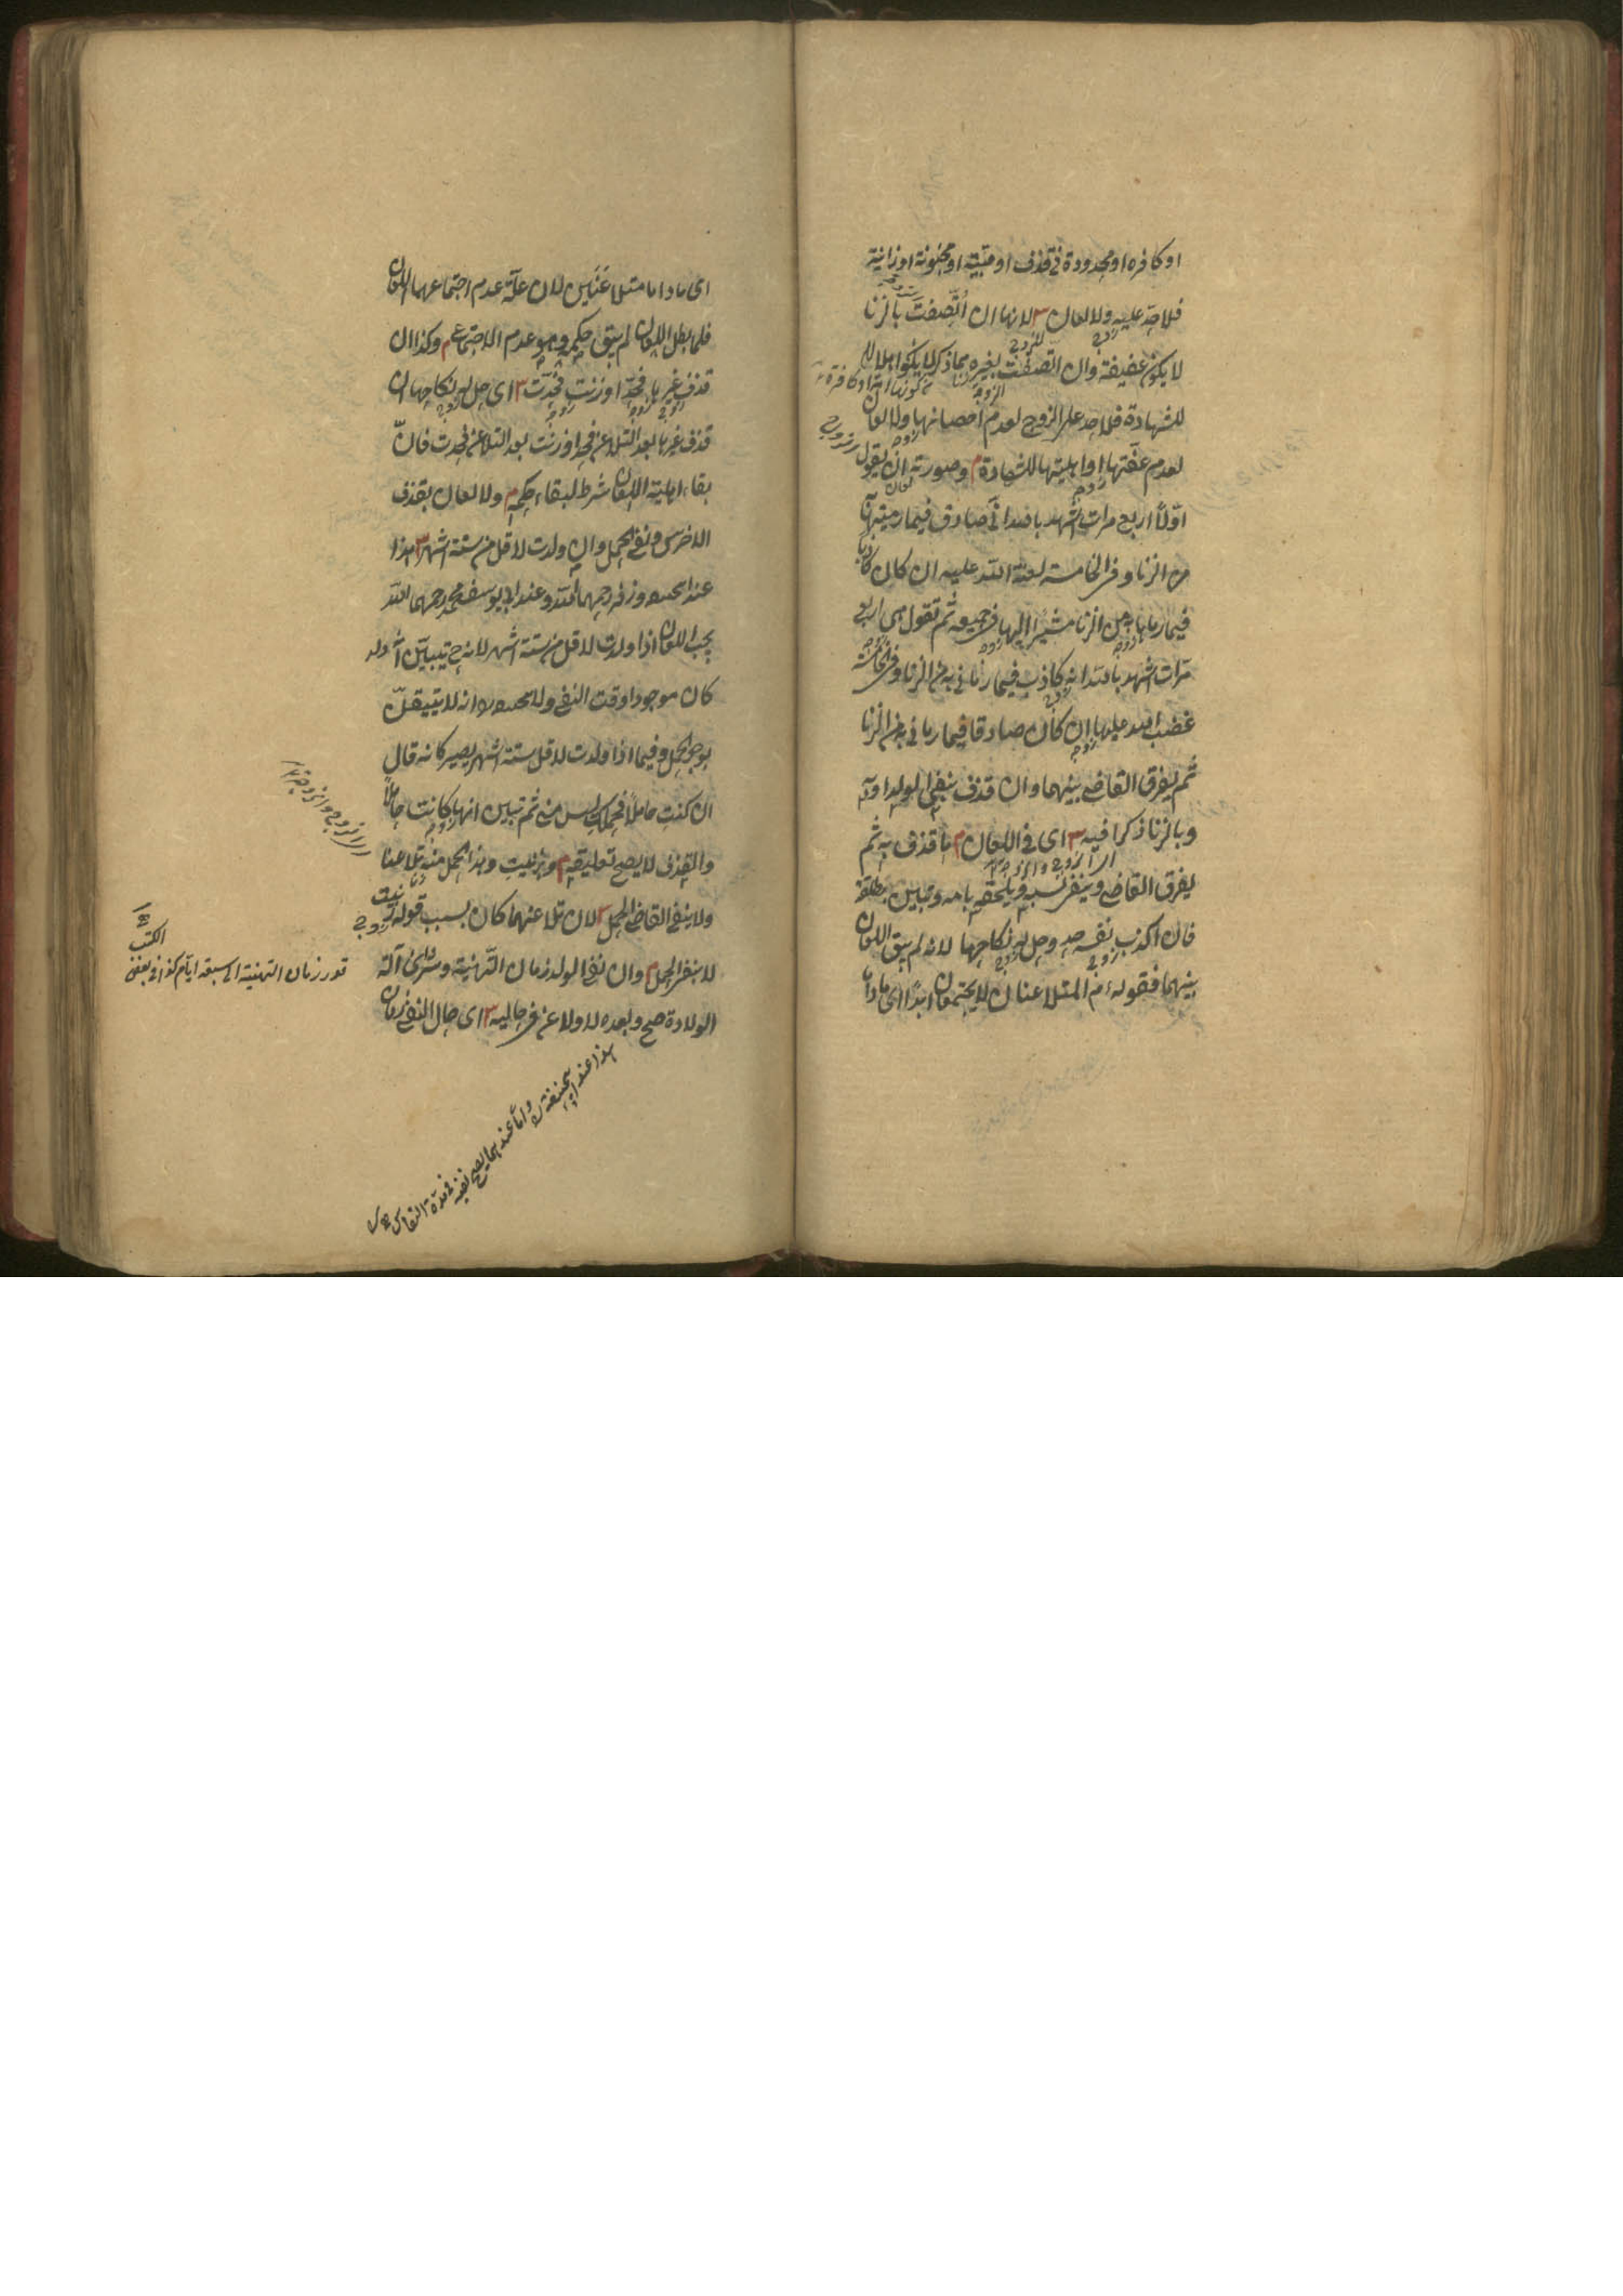 او كافرة او محدودة في قذف او صبية او مجنونة او زانية
فلا حد عليه ولا لعان ش لانها ان اتصفت بالزنا
لا يكون عفيفة وان اتصفت بغيره مما ذكر لا يكون اهلا
للشهادة فلا حد على الزوج لعدم احصانها ولا لعان
لعدم عفتها او اهليتها للشهادة م وصورته ان يقول
اولا اربع مرات اشهد بالله اني صادق فيما رميتها به
من الزنا وفي الخامسة لعنة الله عليه ان كان كاذبا
فيما رماها به من الزنا مشيرا اليها في جميعه ثم تقول هي اربع
مرات اشهد بالله انه كاذب فيما رماني به من الزنا وفي الخامسة
غضب الله عليها ان كان صادقا فيما رماني به من الزنا
ثم يفرق القاضي بينهما وان قذف بنفي الولد او به
وبالزنا ذكرا فيه ش اى في اللعان م ما قذف به ثم
يفرق القاضي وينفي نسبه ويلحقه بامه وتبين بطلقة
فان اكذب نفسه حد وحل له نكاحها لانه لم يبق اللعان
بينهما فقوله ع م المتلاعنان لا يجتمعان ابدا اى ما داما
اى ما داما متلاعنين لان علة عدم اجتماعهما اللعان
فلما بطل اللعان لم يبق حكمه وهو عدم الاجتماع م وكذا ان
قذف غيرها فحد او زنت فحدت ش اى حل له نكاحها ان
قذف غيرها بعد التلاعن فحد او زنت بعد التلاعن فحدت فان
بقاء اهلية اللعان شرط لبقاء حكمه م ولا لعان بقذف
الاخرس ونفي الحمل وان ولدت لاقل من ستة اشهر ش هذا
عند ابي حنيفة وزفر رحمهما الله وعند ابي يوسف ومحمد رحمهما الله
يجب اللعان اذا ولدت لاقل من ستة اشهر لانه ح تبين انه
كان موجودا وقت النفي ولابي حنيفة انه لا يتيقن
بوجود الحمل وفيما اذا ولدت لاقل ستة اشهر يصير كانه قال
ان كنت حاملا فحملك ليس مني ثم تبين انها كانت حاملا
والقذف لا يصح تعليقه م وبزنيت وهذا الحمل منه تلاعنا
ولا ينفي القاضي الحمل ش لان تلاعنهما كان بسبب قوله زنيت
لا بنفي الحمل م وان نفى الولد زمان التهنية وشرى آلة
الولادة صح وبعده لا ولاعن في حاليه ش اى حال النفي زمان
قدر زمان التهنية الى سبعة ايام كذا في بعض
الكتب
هذا عند ابي حنيفة واما عندهما يصح نفيه في مدة النفاس